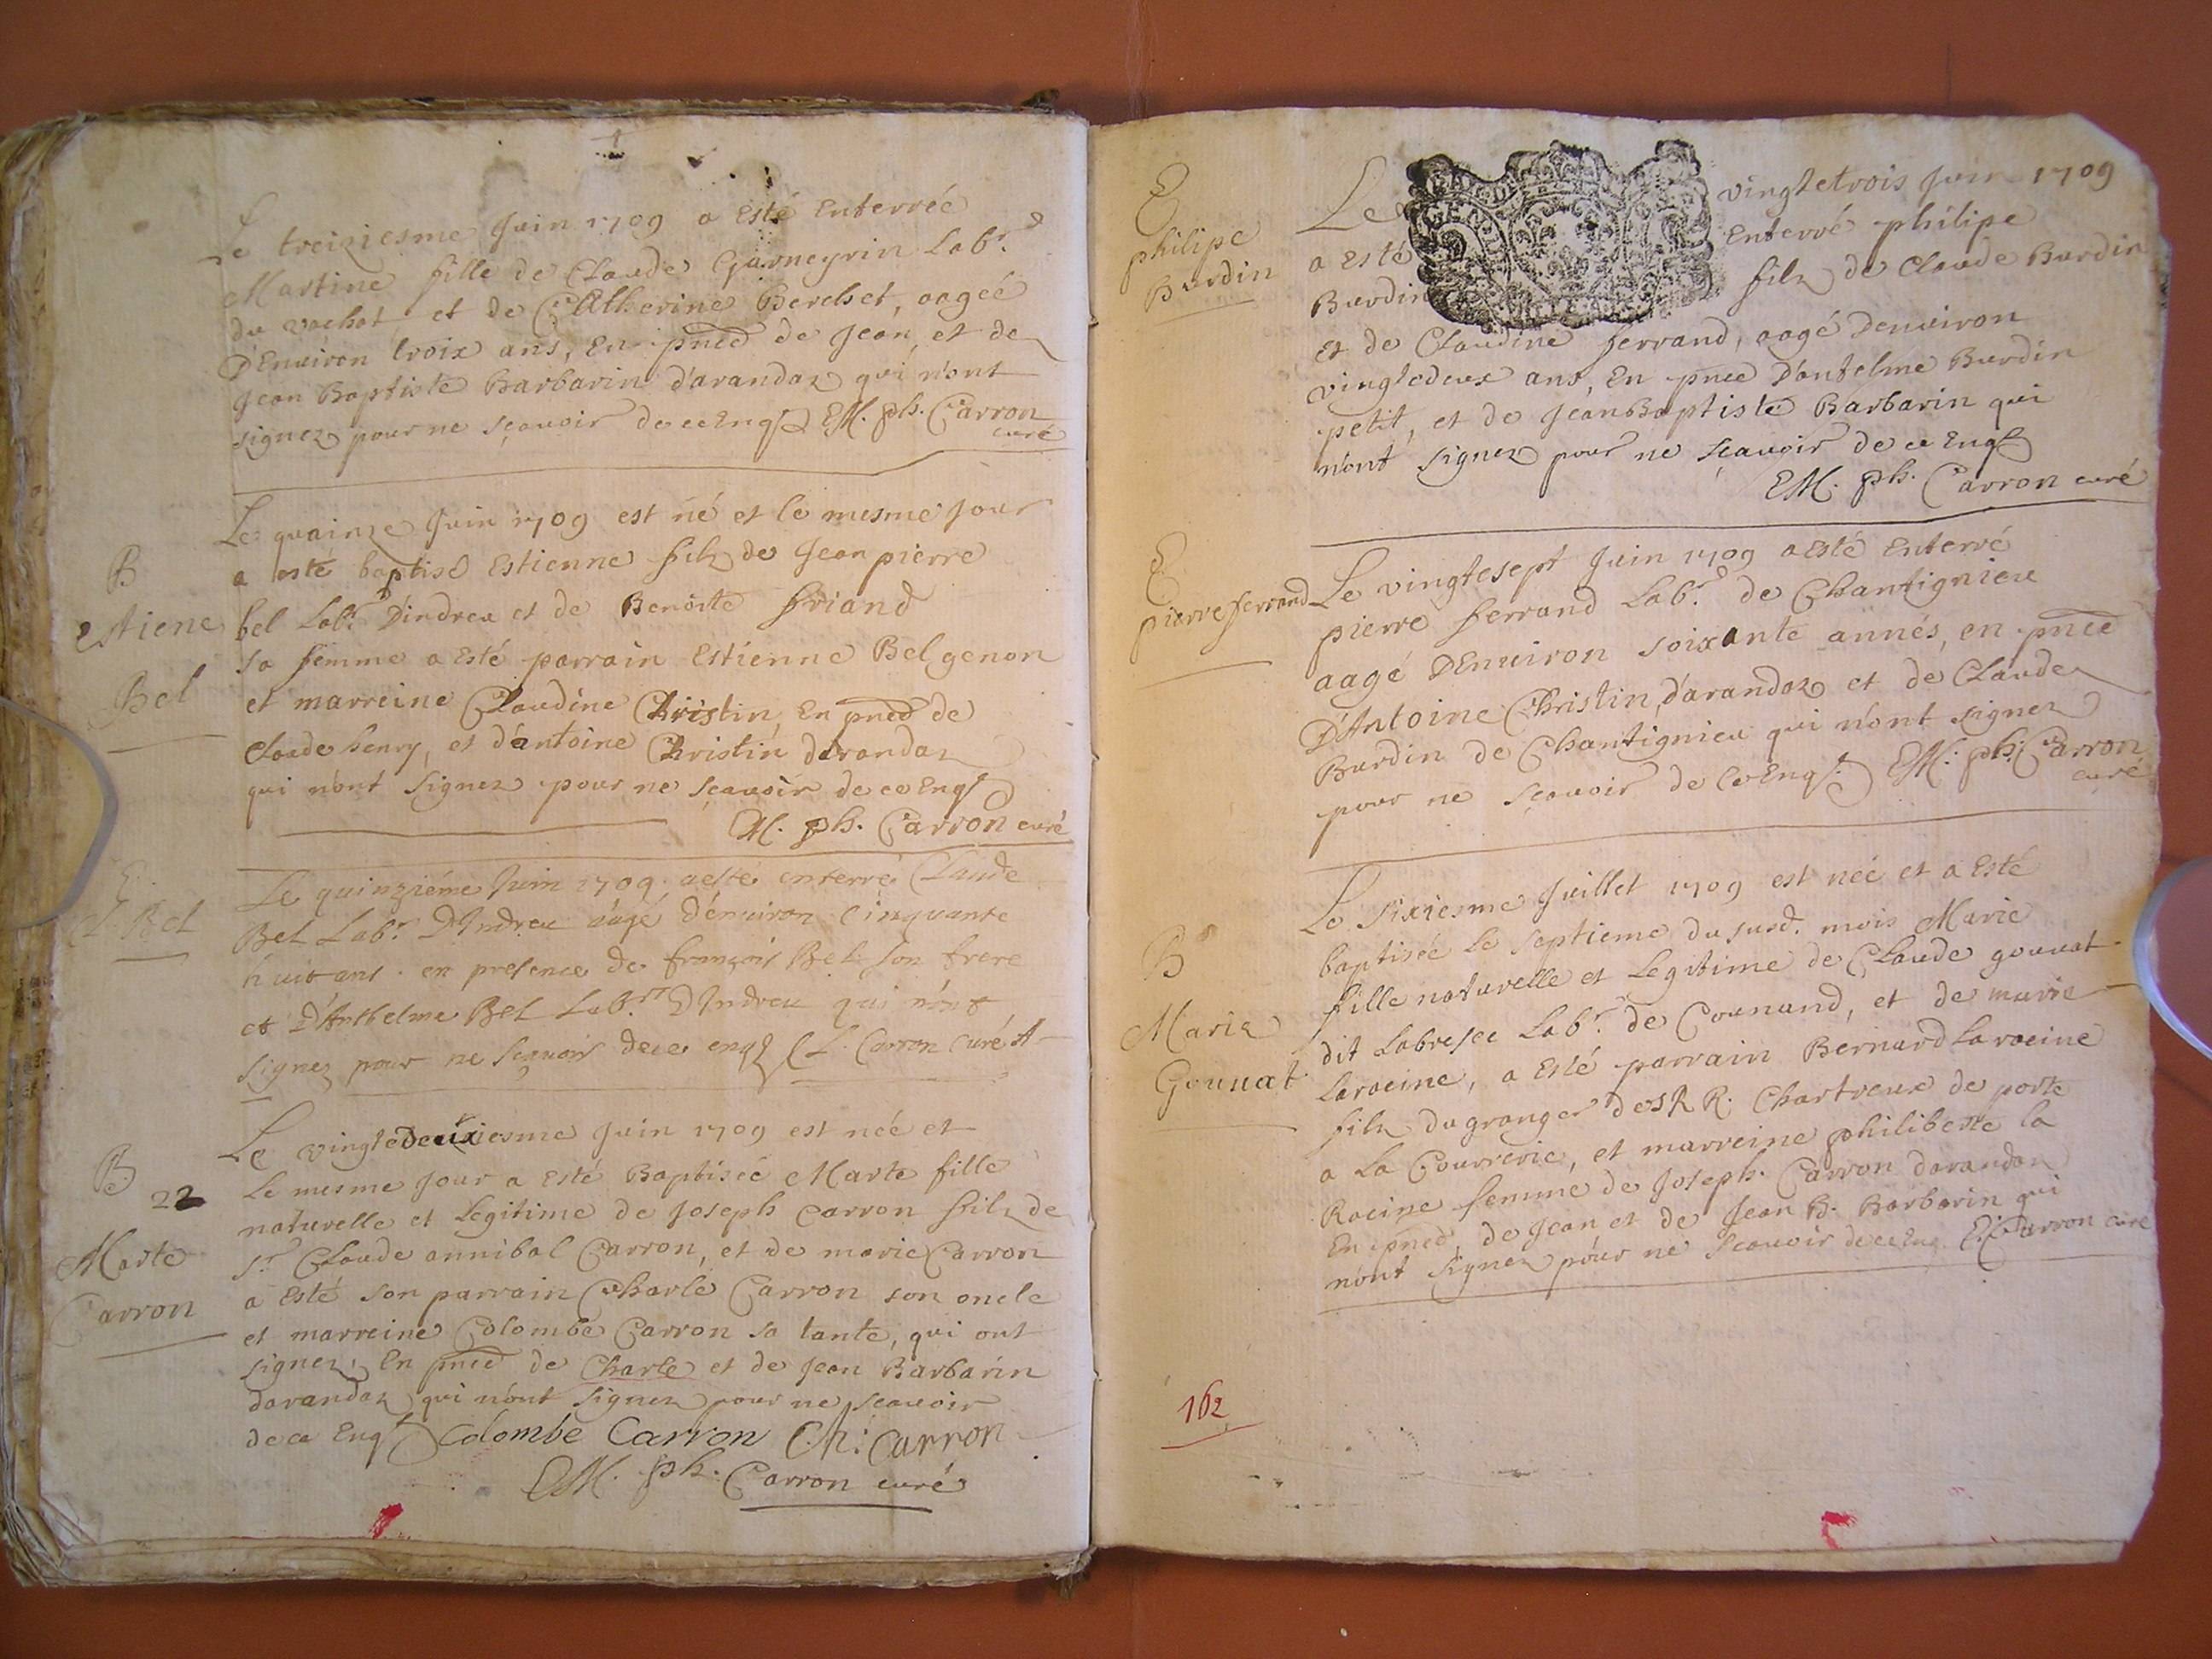 Le treiziesme Juin 1709 a Esté Enterréé
Martine fille de Claude Garneyrin Labr.
du vachat et de Catherine Berchet, aagéé
D'Enuiron troix ans, En pnce de Jean, et de
Jean Baptiste Barbarin d'arandaz qui n'ont
signez pour ne sçauoir de ce Enqs EM. ph. Carron
curé
B
estiene
Bel
Le quainze Juin 1709 est né et le mesme jour
a esté baptisé Estienne filz de Jean pierre
bel Labr. D'indrea et de Benoite friand
sa femme a Esté parrain Estienne Bel genon
et marreine Claudine Christin, En pnce de
Claude henry, et d'antoine Christin darandaz
qui n'ont signez pour ne sçauoir de ce Enqs
EM. ph. Carron curé
E
Cl. Bel
Le quinziéme Juin 1709 a esté enterré Claude
Bel Labr. D'Indreu aagé d'enuiron cinquante
huit ans en presence de françois Bel son frere
et D'Anthelme Bel Labr. D'Indreu qui n'ont
signez pour ne sçauoir de ce enqs Carron Curé
B
22
Marte
Carron
Le vingtedeuxiesme Juin 1709 est néé et
le mesme jour a Esté Baptiséé Marte fille
naturelle et Legitime de Joseph Carron filz de
sr. Claude annibal Carron, et de marie Carron
a Esté son parrain Charle Carron son oncle
et marreine Colombe Carron sa tante, qui ont
signez, En pnce de Charle et de Jean Barbarin
darandaz qui n'ont signez pour ne sçauoir
de ce Enqs Colombe Carron Ch: Carron
EM. ph. Carron curé
E
philipe
Burdin
Le vingtetrois Juin 1709
a Esté Enterré philipe
Burdin filz de Claude Burdin
et de Claudine ferrand, aagé Denuiron
vingtedeux ans, En pnce D'antelme Burdin
petit, et de Jean Baptiste Barbarin qui
n'ont signez pour ne sçauoir de ce Enqs
EM. ph. Carron curé
E
pierre ferrand
Le vingtesept Juin 1709 a Esté Enterré
pierre ferrand Labr. de Chantignieu
aagé DEnuiron soixante annés, en pnce
D'Antoine Christin, d'arandaz et de Claude
Burdin de Chantignieu qui n'ont signez
pour ne sçauoir de Ce Enqs. EM. ph. Carron
curé
B
Marie
Gouuat
Le sixiesme Juillet 1709 est néé et a Esté
baptiséé le septieme du susd. mois Marie
fille naturelle et Legitime de Claude gouuat
dit Labresce Labr. de Counand, et de marie
Laracine, a Esté parrain Bernard Laracine
filz du granger des RR. Chartreux de porte
a La Courrerie, et marreine philiberte la
Racine femme de Joseph Carron darandaz
En pnce, de Jean et de Jean B. Barbarin qui
n'ont signez pour ne sçauoir de ce Enq Carron curé
162